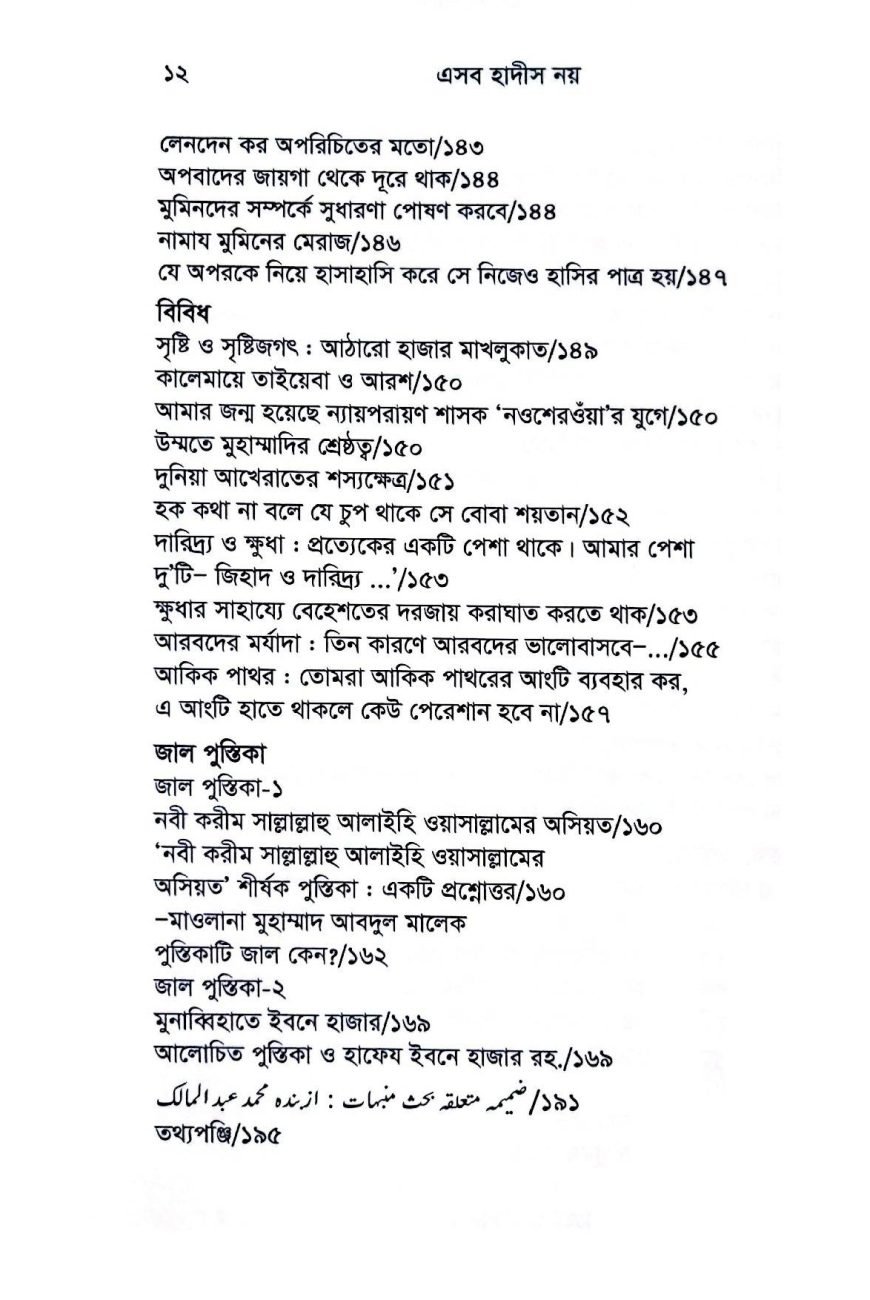 ১২ এসব হাদীস নয়
লেনদেন কর অপরিচিতের মতো/১৪৩
অপবাদের জায়গা থেকে দূরে থাক/১৪৪
মুমিনদের সম্পর্কে সুধারণা পোষণ করবে/১৪৪
নামায মুমিনের মেরাজ/১৪৬
যে অপরকে নিয়ে হাসাহাসি করে সে নিজেও হাসির পাত্র হয়/১৪৭
বিবিধ
সৃষ্টি ও সৃষ্টিজগৎ : আঠারো হাজার মাখলুকাত/১৪৯
কালেমায়ে তাইয়েবা ও আরশ/১৫০
আমার জন্ম হয়েছে ন্যায়পরায়ণ শাসক ‘নওশেরওঁয়া’র যুগে/১৫০
উম্মতে মুহাম্মাদির শ্রেষ্ঠত্ব/১৫০
দুনিয়া আখেরাতের শস্যক্ষেত্র/১৫১
হক কথা না বলে যে চুপ থাকে সে বোবা শয়তান/১৫২
দারিদ্র্য ও ক্ষুধা : প্রত্যেকের একটি পেশা থাকে। আমার পেশা
দু’টি– জিহাদ ও দারিদ্র্য ...’/১৫৩
ক্ষুধার সাহায্যে বেহেশতের দরজায় করাঘাত করতে থাক/১৫৩
আরবদের মর্যাদা : তিন কারণে আরবদের ভালোবাসবে–.../১৫৫
আকিক পাথর : তোমরা আকিক পাথরের আংটি ব্যবহার কর,
এ আংটি হাতে থাকলে কেউ পেরেশান হবে না/১৫৭
জাল পুস্তিকা
জাল পুস্তিকা-১
নবী করীম সাল্লাল্লাহু আলাইহি ওয়াসাল্লামের অসিয়ত/১৬০
‘নবী করীম সাল্লাল্লাহু আলাইহি ওয়াসাল্লামের
অসিয়ত’ শীর্ষক পুস্তিকা : একটি প্রশ্নোত্তর/১৬০
–মাওলানা মুহাম্মাদ আবদুল মালেক
পুস্তিকাটি জাল কেন?/১৬২
জাল পুস্তিকা-২
মুনাব্বিহাতে ইবনে হাজার/১৬৯
আলোচিত পুস্তিকা ও হাফেয ইবনে হাজার রহ./১৬৯
ضمیمہ متعلقہ بحث منبہات : از بندہ محمد عبد المالک/১৯১
তথ্যপঞ্জি/১৯৫